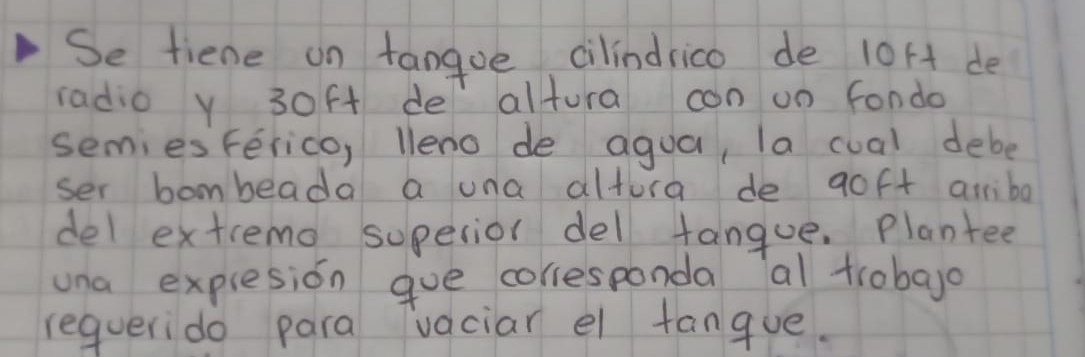 Se tiene un tanque cilíndrico de 10ft de
radio y 30ft de altura con un fondo
semiesférico, lleno de agua, la cual debe
ser bombeada a una altura de 90ft arriba
del extremo superior del tanque. Plantee
una expresión que corresponda al trabajo
requerido para vaciar el tanque.